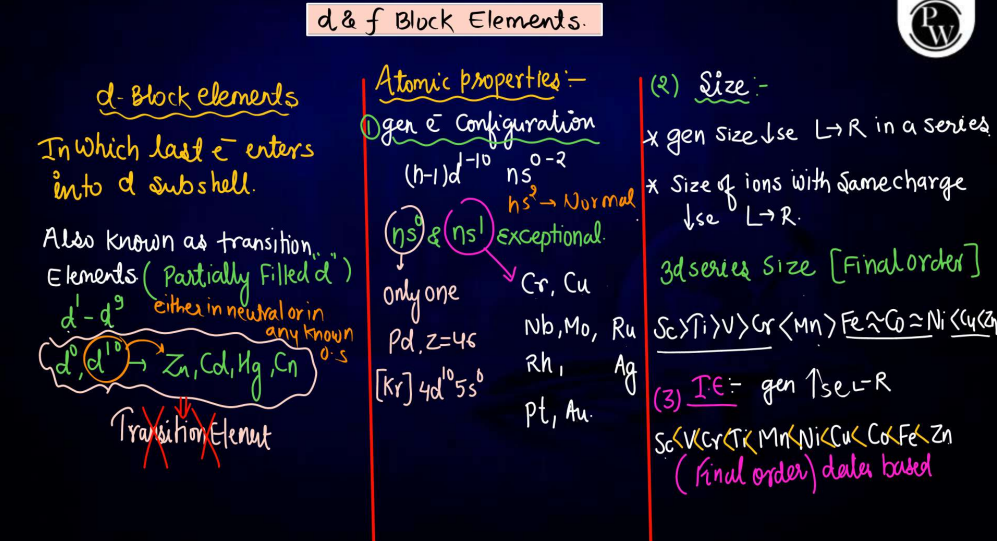 d & f Block Elements.
PW
d-Block elements
In which last e⁻ enters
into d subshell.
Also known as transition
Elements (Partially Filled "d")
d¹ - d⁹ either in neutral or in
any known
o.s
d⁰, d¹⁰ → Zn, Cd, Hg, Cn
Transition Element
Atomic properties:-
① gen e⁻ Configuration
(n-1)d¹⁻¹⁰ ns⁰⁻²
ns² → Normal
ns⁰ & ns¹ exceptional.
only one
Pd, z=46
[Kr] 4d¹⁰ 5s⁰
Cr, Cu
Nb, Mo, Ru
Rh, Ag
Pt, Au.
(2) Size:-
* gen size ↓se L→R in a series.
* Size of ions with same charge
↓se L→R.
3d series size [Final order]
Sc>Ti>V>Cr<Mn>Fe≈Co≈Ni<Cu<Zn
(3) I.E:- gen ↑se L-R
Sc<V<Cr<Ti<Mn<Ni<Cu<Co<Fe<Zn
(Final order) data based